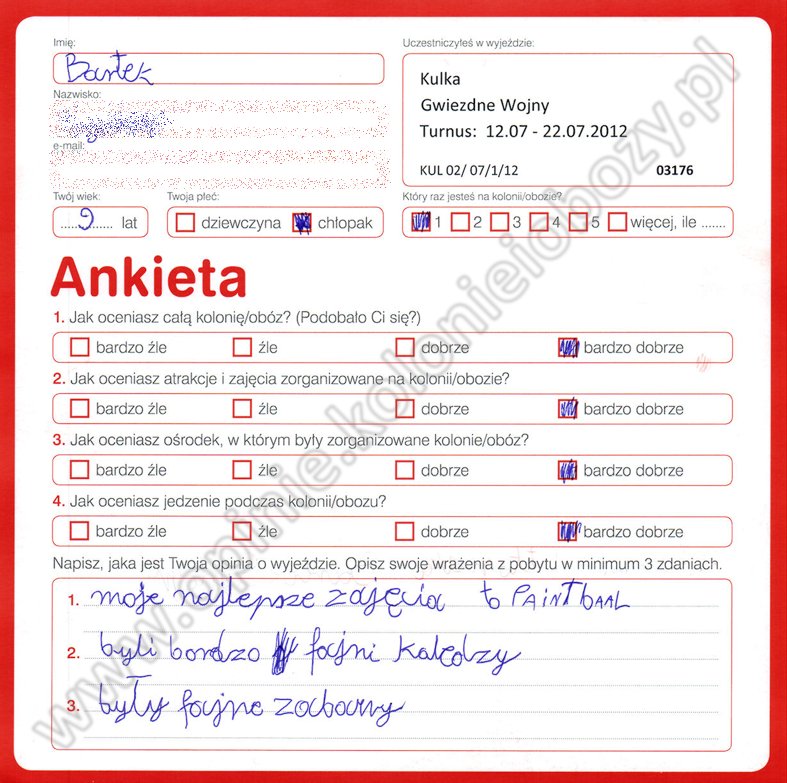 Imię:
Bartek
Uczestniczyłeś w wyjeździe:
Kulka
Gwiezdne Wojny
Turnus: 12.07 - 22.07.2012
KUL 02/ 07/1/12 03176
Nazwisko:
e-mail:
Twój wiek:
9 lat
Twoja płeć:
dziewczyna chłopak
Który raz jesteś na kolonii/obozie?
1 2 3 4 5 więcej, ile .......
Ankieta
1. Jak oceniasz całą kolonię/obóz? (Podobało Ci się?)
bardzo źle źle dobrze bardzo dobrze
2. Jak oceniasz atrakcje i zajęcia zorganizowane na kolonii/obozie?
bardzo źle źle dobrze bardzo dobrze
3. Jak oceniasz ośrodek, w którym były zorganizowane kolonie/obóz?
bardzo źle źle dobrze bardzo dobrze
4. Jak oceniasz jedzenie podczas kolonii/obozu?
bardzo źle źle dobrze bardzo dobrze
Napisz, jaka jest Twoja opinia o wyjeździe. Opisz swoje wrażenia z pobytu w minimum 3 zdaniach.
1. moje najlepsze zajęcia to PAiNTbAAL
2. byli bardzo fajni kaledzy
3. były fajne zabawy
www.opinie.kolonieiobozy.pl